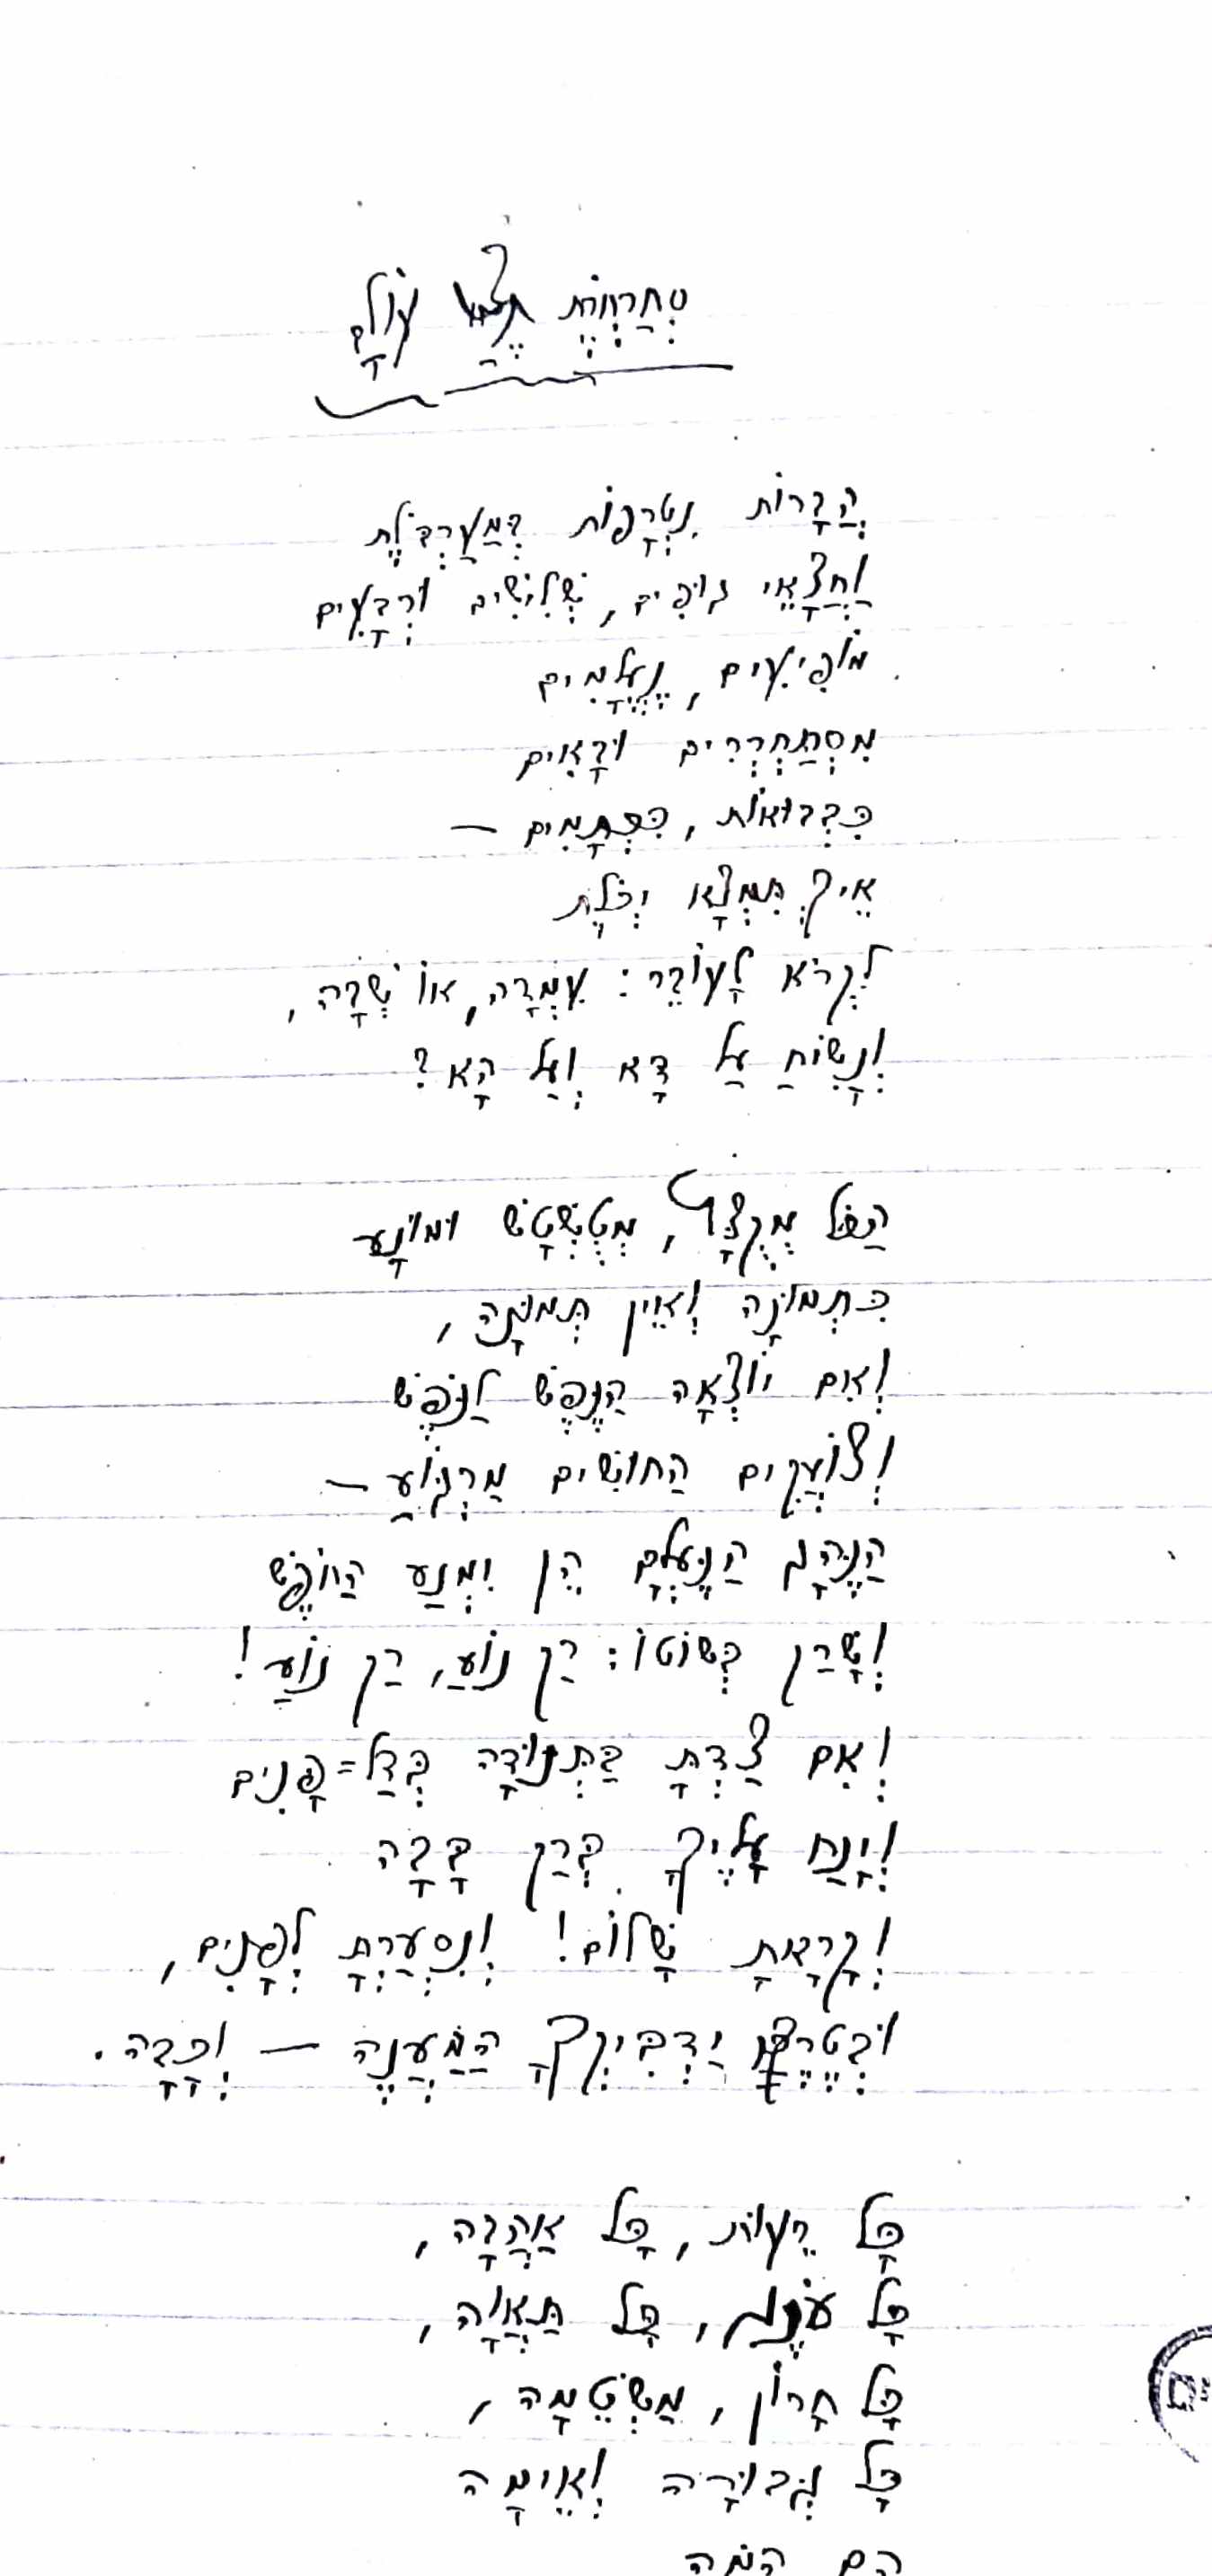 סְחַרְחֹרֶת
הֲבָרוֹת נִטְרָפוֹת בְּמַעַרְבֹּלֶת
וַחֲצָאֵי גוּפִים, שְׁלִישִׁים וּרְבָעִים
מוֹפִיעִים, נֶעֱלָמִים
מִסְתַּחְרְרִים וּבָאִים
כִּבְרוּאוֹת, כִּכְתָמִים —
אֵיךְ תִּמְצָא יְכֹלֶת
לִקְרֹא לָעוֹבֵר: עֲמָדָה, אוֹ שְׁבָה,
וְנָשִׂיחַ עַל דָּא וְעַל הָא?
הַכֹּל מְקֻצָּף, מְטֻשְׁטָשׁ וּמוּנָע
כִּתְמוּנָה וְאֵין תְּמוּנָה,
וְאִם יוֹצְאָה הַנֶּפֶשׁ לַנֹּפֶשׁ
וְצוֹעֲקִים הַחוּשִׁים מַרְגּוֹעַ —
הַנֶּהָג הַנֶּעְלָם הֵן יִמְנַע הַחוֹפֶשׁ
וְשָׁרַק בְּשׁוֹטוֹ: רַק נוֹעַ, רַק נוֹעַ!
וְאִם צַדְתָּ בַּתְּנוּדָה בְּדַל=פָּנִים
וְיָנַח עָלֶיךָ בְּרַק בָּבָה
וְקָרָאתָ שָׁלוֹם! וְנִסְעַרְתָּ לִפְנִים,
וּבְטֶרֶם יַדְבִּיקְךָ הַמַּעֲנֶה — וְכָבָה.
כָּל רֵעוּת, כָּל אַהֲבָה,
כָּל עֹנֶג, כָּל תַּאֲוָה,
כָּל חָרוֹן, מַשְׂטֵמָה,
כָּל גְּבוּרָה וְאֵימָה
הֵם הֵמָּה